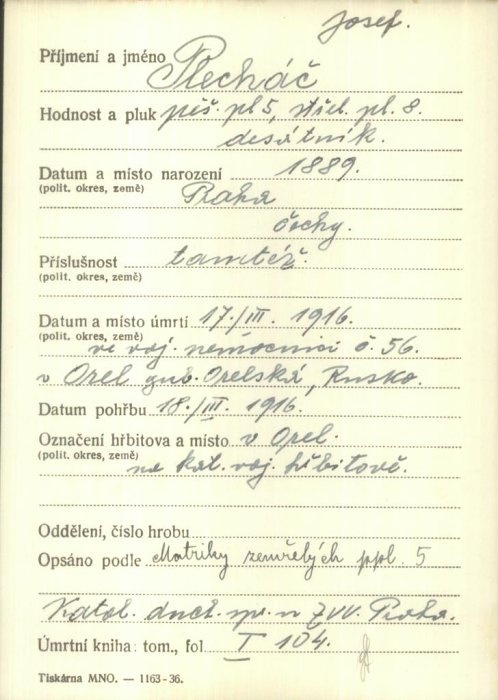 Josef.
Příjmení a jméno Plecháč
Hodnost a pluk pěš. pl 5, střel. pl. 8.
desátník.
Datum a místo narození 1889.
(polit. okres, země) Praha
Čechy.
Příslušnost tamtéž.
(polit. okres, země)
Datum a místo úmrtí 17./III. 1916.
(polit. okres, země) ve voj. nemocnici č. 56.
v Orel gub. Orelská, Rusko.
Datum pohřbu 18./III. 1916.
Označení hřbitova a místo v Orel.
(polit. okres, země) na kat. voj. hřbitově.
Oddělení, číslo hrobu
Opsáno podle Matriky zemřelých ppl. 5
Katol. duch. spr. u ZVV. Praha.
Úmrtní kniha: tom., fol I 104.
Tiskárna MNO. — 1163-36.